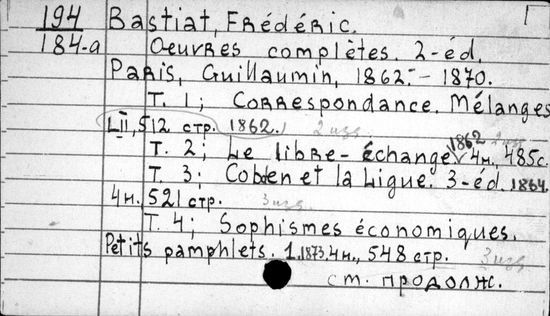 194 Bastiat, Frédéric.
184-а Oeuvres complètes. 2-éd.
Paris, Guillaumin, 1862.-1870.
T. 1; Correspondance. Mélanges
LII, 512 стр. 1862. 2 изд.
T. 2; Le libre-échange, 1862 4н. 485с.
T. 3; Cobden et la Ligue. 3-éd. 1864.
4н., 521 стр. 3 изд.
T. 4; Sophismes économiques.
Petits pamphlets. 1. 1873. 4н., 548 стр. 3 изд
ст. продолж.